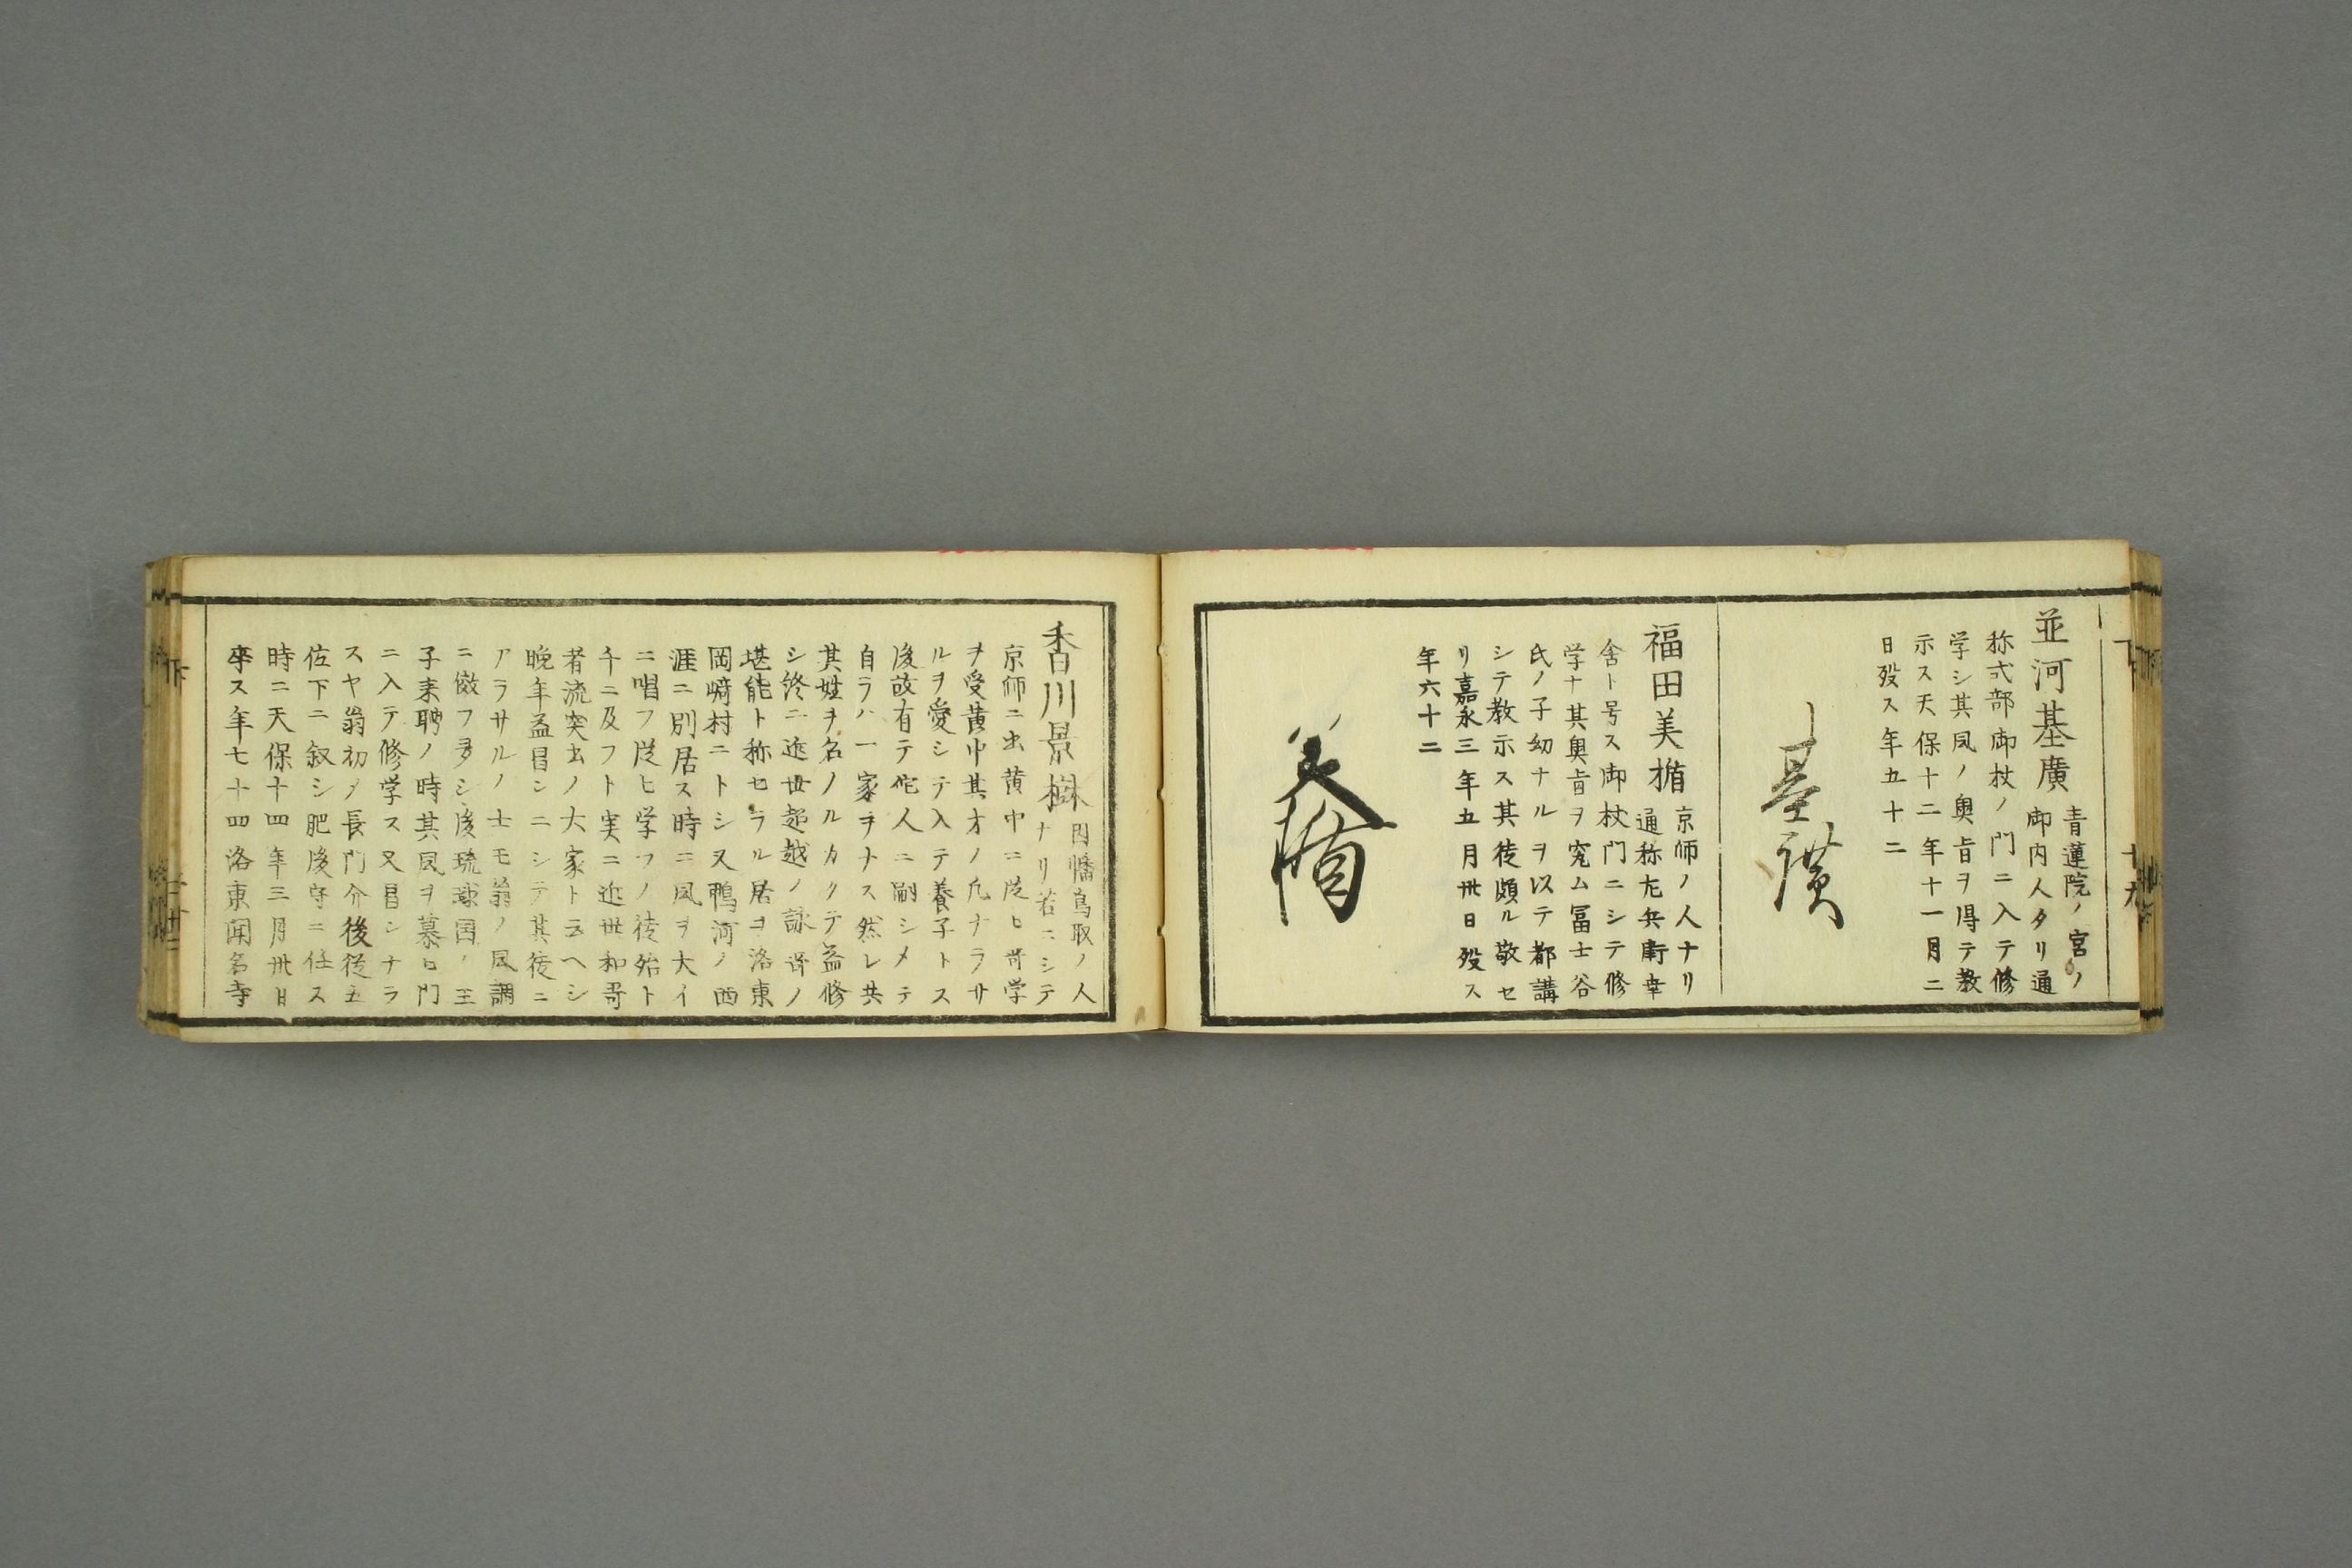 並河基廣
青蓮院ノ宮ノ
御内人タリ通
称式部御杖ノ門ニ入テ修
学シ其風ノ奥旨ヲ得テ教
示ス天保十二年十一月二
日歿ス年五十二
基廣
福田美楯
京師ノ人ナリ
通称左兵衛幸
舎ト号ス御杖門ニシテ修
学ナ其奥旨ヲ究ム冨士谷
氏ノ子幼ナルヲ以テ都講
シテ教示ス其徒頗ル敬セ
リ嘉永三年五月卅日歿ス
年六十二
美楯
香川景樹
因幡鳥取ノ人
ナリ若ニシテ
京師ニ出黄中ニ従ヒ哥学
ヲ受黄中其才ノ凡ナラサ
ルヲ愛シテ入テ養子トス
後故有テ佗人ニ嗣シメテ
自ラハ一家ヲナス然レ共
其姓ヲ名ノルカクテ益修
シ終ニ近世超越ノ詠哥ノ
堪能ト称セラル居ヲ洛東
岡﨑村ニトシ又鴨河ノ西
涯ニ別居ス時ニ風ヲ大イ
ニ唱フ従ヒ学フノ徒殆ト
千ニ及フト実ニ近世和哥
者流突出ノ大家ト云ヘシ
晩年益昌ンニシテ其徒ニ
アラサルノ士モ翁ノ風調
ニ倣フ多シ後琉球国ノ王
子来聘ノ時其風ヲ慕ヒ門
ニ入テ修学ス又昌シナラ
スヤ翁初メ長門介後従五
佐下ニ叙シ肥後守ニ任ス
時ニ天保十四年三月卅日
卒ス年七十四洛東聞名寺